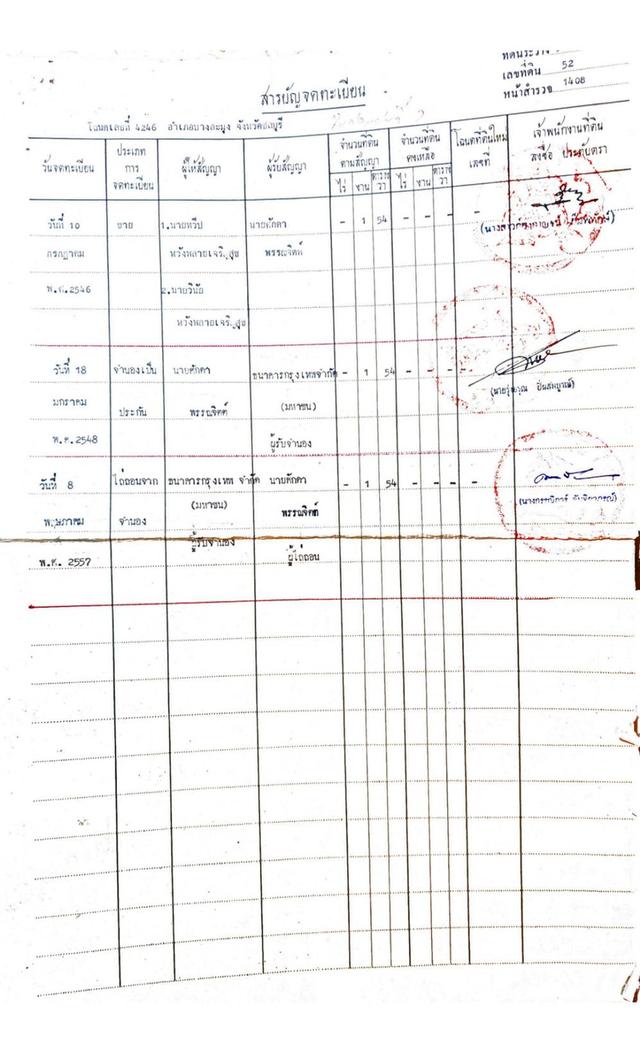 เลขที่ดิน 52
หน้าสำรวจ 1408
สารบัญจดทะเบียน
โฉนดเลขที่ 4246 อำเภอบางละมุง จังหวัดชลบุรี
วันจดทะเบียน ประเภทการจดทะเบียน ผู้ให้สัญญา ผู้รับสัญญา จำนวนที่ดินตามสัญญา จำนวนที่ดินคงเหลือ โฉนดที่ดินใหม่เลขที่ เจ้าพนักงานที่ดิน ลงชื่อ ประทับตรา
ไร่ งาน ตารางวา ไร่ งาน ตารางวา
วันที่ 10 ขาย 1.นายทวีป นายศักดา - 1 54 - - - -
กรกฎาคม หวังหลายเจริญสุข พรรณจิตต์
พ.ศ.2546 2.นายวินัย
หวังหลายเจริญสุข
วันที่ 18 จำนองเป็น นายศักดา ธนาคารกรุงเทพจำกัด - 1 54 - - - --
มกราคม ประกัน พรรณจิตต์ (มหาชน)
พ.ศ.2548 ผู้รับจำนอง
วันที่ 8 ไถ่ถอนจาก ธนาคารกรุงเทพ จำกัด นายศักดา - 1 54 - - - -
พฤษภาคม จำนอง (มหาชน) พรรณจิตต์
พ.ศ. 2557 ผู้รับจำนอง ผู้ไถ่ถอน